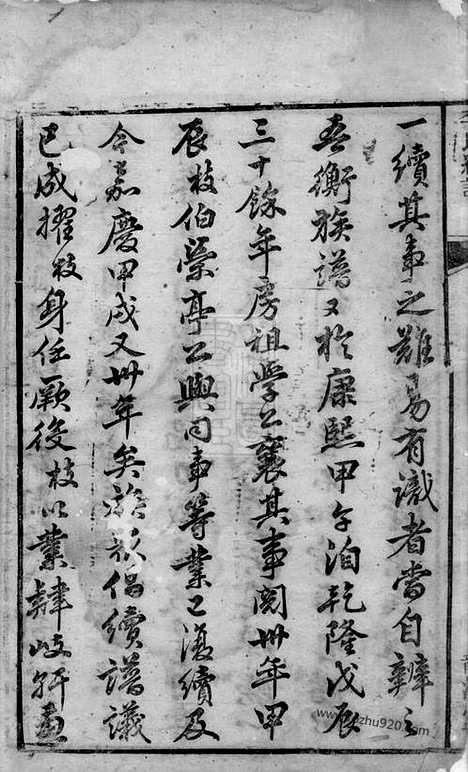 一續其事之難易有識者當自辨之
吾衡族譜又於康熙甲午洎乾隆戊辰
三十餘年房祖學公襄其事閱卅年甲
辰枝伯榮亭公與同事等業已復續及
今嘉慶甲戌又卅年矣族衆倡續譜議
已成擢枝身任厥後枝以業肄岐軒
www.zhu920.com